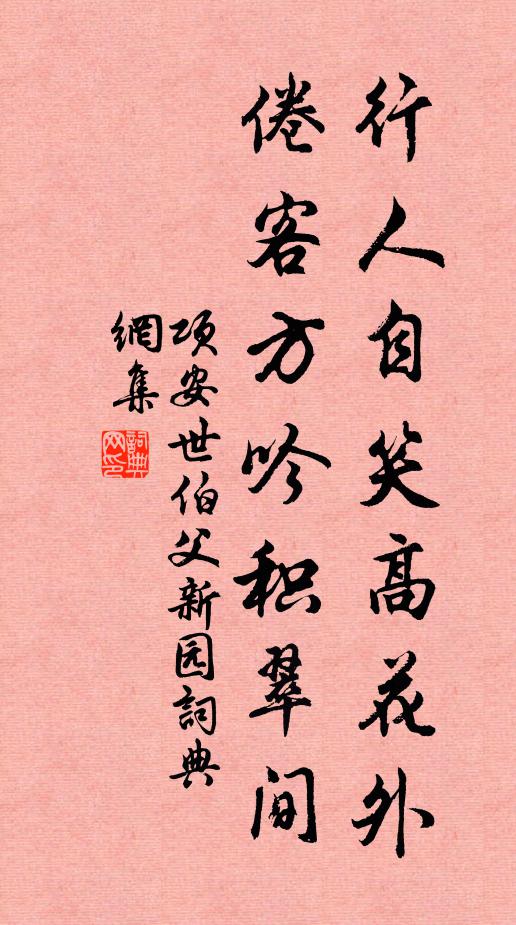 行人自笑高花外
倦客方吟积翠间
项安世伯父新园詞典
網集
詞典
网印